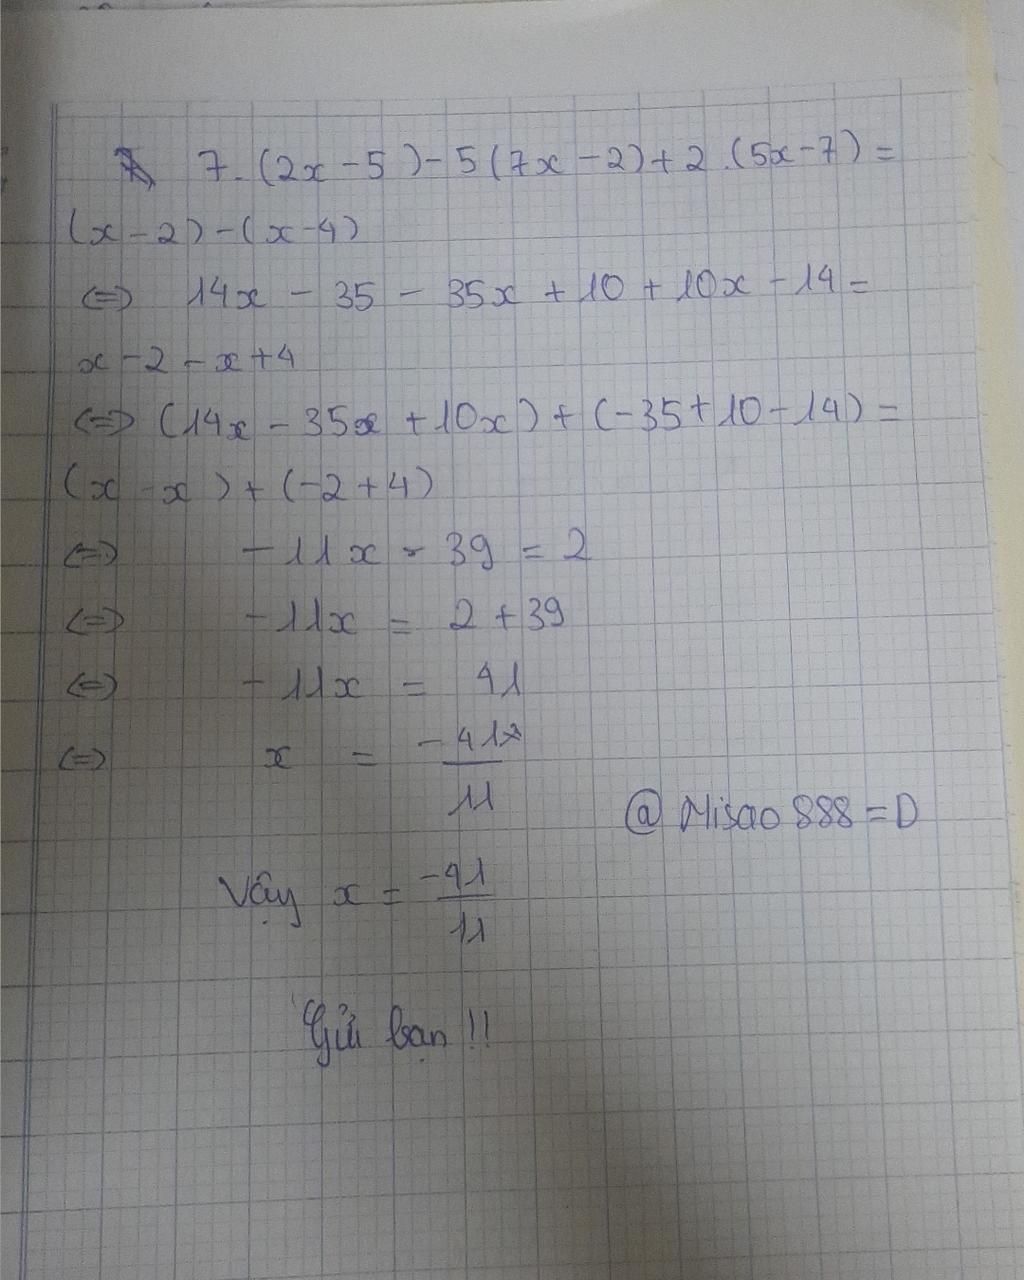 7. (2x - 5) - 5 (7x - 2) + 2 . (5x - 7) =
(x - 2) - (x - 4)
<=> 14x - 35 - 35x + 10 + 10x - 14 =
x - 2 - x + 4
<=> (14x - 35x + 10x) + (-35 + 10 - 14) =
(x - x) + (-2 + 4)
<=> -11x - 39 = 2
<=> -11x = 2 + 39
<=> -11x = 41
<=> x = -41/11
@ Misao 888 = D
Vậy x = -41/11
Gửi bạn !!